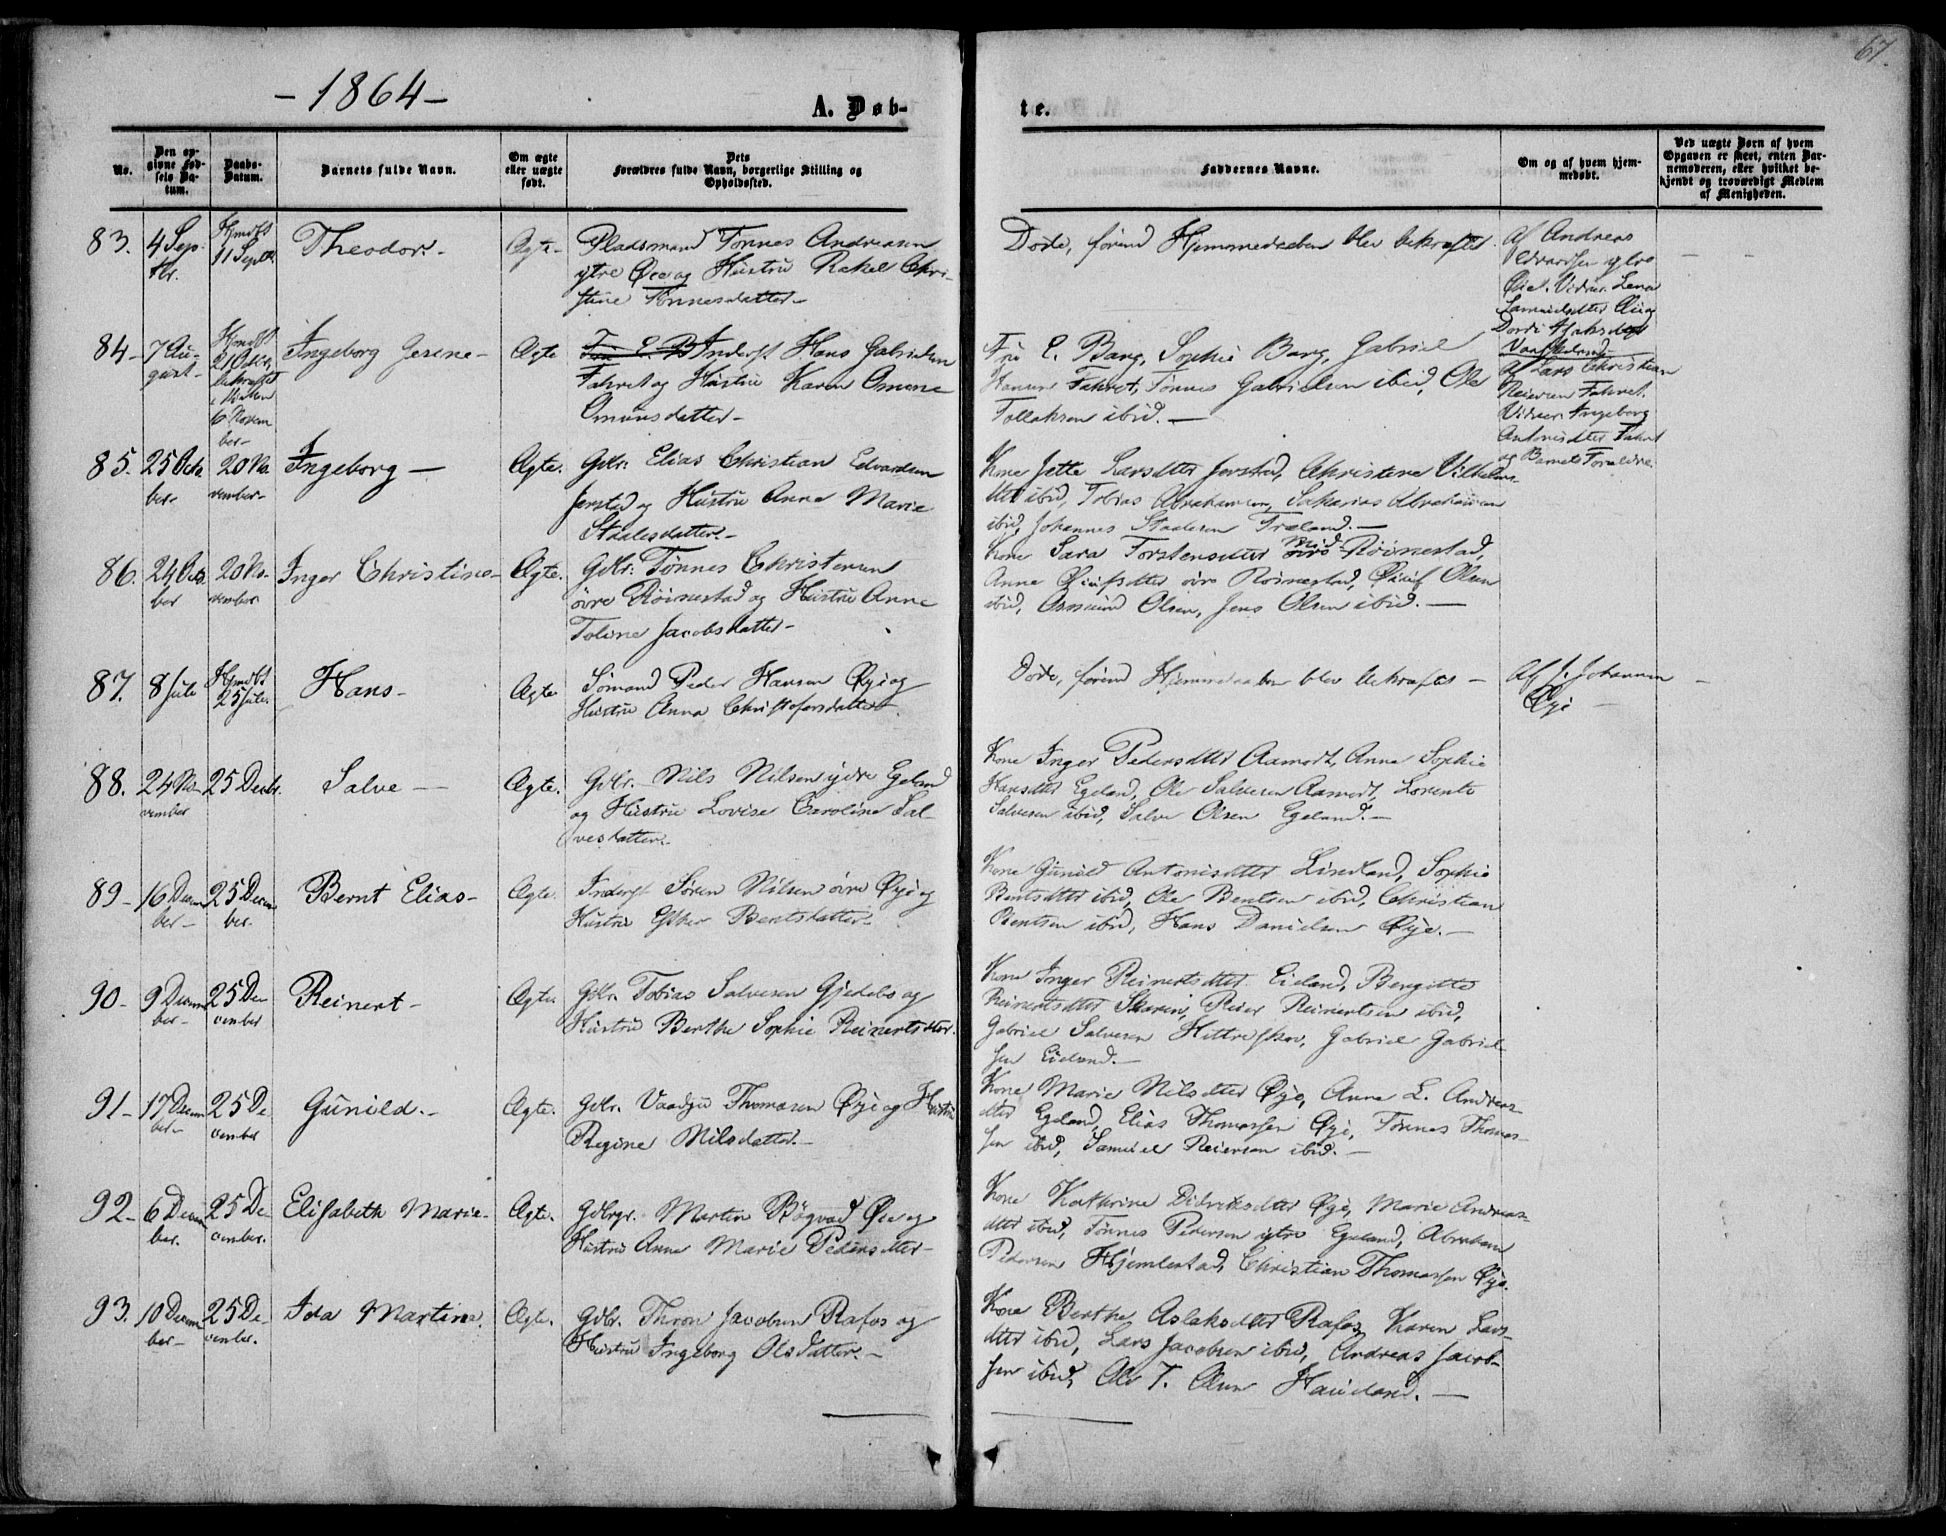 67.
- 1864 -
A. Døb-
te.
No.
Den op-
givne Fød-
sels Da-
tum.
Daabs-
Datum.
Barnets fulde Navn.
Om ægte
eller uægte
født.
Dets
Forældres fulde Navn, borgerlige Stilling og
Opholdssted.
Faddernes Navne.
Om og af hvem hjem-
medøbt.
Ved uægte Børn af hvem
Opgaven er skeet, enten Bar-
nemoderen, eller hvilket be-
kjendt og troværdigt Medlem
af Menigheden.
83.
4 Sep-
tbr.
Hjmdbt
11 Septbr.
Theodor.
Ægte.
Pladsmand Tønnes Andreasen
ytre Øie og Hustru Rakel Chri-
stine Tønnesdatter.
Døde, førend Hjemmedaaben blev bekræftet.
Af Andreas
Edvardsen ytre
Øie. Vidner: Lena
Samuelsdtter Øie og
Dordi
84.
7 Au-
gust.
Hjmdbt
21 Octbr,
bekræftet
i Kirken
6 Novem
ber.
Ingeborg Gesine
Ægte
Inderst Hans Gabrielsen
Fahret og Hustru Karen Omine
Omunsdatter.
Fru E. Bang, Sophie Bang, Gabriel
Hansen Fahret, Tønnes Gabrielsen ibid, Ole
Tollaksen ibid.
Af Lars Christian
Reiersen Fahret.
Vidner: Ingeborg
Antonisdtter Fahret
og Barnets Forældre.
85.
25 Octo
ber.
20 No-
vember.
Ingeborg
Ægte.
Gdbr. Elias Christian Edvardsen
Jerstad og Hustru Anne Marie
Staalesdatter.
Kone Jette Larsdtter Jerstad, Christine Vilhelms-
dtter ibid, Tobias Abrahamsen, Sakarias Abrahamsen
ibid, Johannes Staalesen Træland.
86.
24 Octo
ber
20 No-
vember
Inger Christine
Ægte.
Gdbr. Tønnes Christensen
øvre Røinestad og Hustru Anne
Toline Jacobsdatter.
Kone Sara Torstensdtter Røinestad,
Anne dtter øvre Røinestad, Olsen
ibid, Osmund Olsen, Jens Olsen ibid.
87.
8 Juli
Hjmdbt
25 Juli.
Hans
Ægte
Sømand Peder Hansen Øye og
Hustru Anna Christofersdatter.
Døde, førend Hjemmedaaben blev bekræftet
Af J. Johannesen
Øye
88.
24 No-
vember
25 Decbr.
Salve
Ægte.
Gdbr. Nils Nilsen ydre Egeland
og Hustru Lovise Caroline Sal-
vesdatter.
Kone Inger Pedersdtter Aamodt, Anne Sophie
Hansdtter Egeland, Ole Salvesen Aamodt, Lorents
Salvesen ibid, Salve Olsen Egeland.
89
16 Decem
ber
25 Decem
ber.
Bernt Elias
Ægte.
Inderst Søren Nilsen øvre Øye og
Hustru Esther Bentsdatter.
Kone Gunild Antonisdtter Lindland, Sophie
Bentsdtter ibid, Ole Bentsen ibid, Christian
Bentsen ibid, Hans Danielsen Øye.
90
9 Decem
ber
25 De-
cember
Reinert
Ægte.
Gdbr. Tobias Salvesen Gjedebo og
Hustru Berthe Sophie Reinertsdtter.
Kone Inger Reinertsdtter Eieland, Bergitte
Reinertsdtter Skarin, Reier Reinertsen ibid,
Gabriel Salvesen Gabriel Gabriel-
sen Eieland.
91
17 Decem
ber
25 De
cember
Gunild.
Ægte.
Gdbr. Thomasen Øye og Hustru
Regine Nilsdatter.
Kone Marie Nilsdtter Øye, Anne L. Andreas-
dtter Egeland, Elias Thomassen Øye, Tønnes Thomas-
sen ibid, Samuel Reiersen ibid.
92
6 Decem
ber.
25 De-
cember.
Elisabeth Marie
Ægte.
Gdbrgr. Martin Bøgvad Øie og
Hustru Anne Marie Pedersdtter
Kone Kathrine Didriksdtter Øye, Marie Andreas-
dtter ibid, Tønnes Pedersen ytre Egeland, Abraham
Pedersen Hjemlestad, Christian Thomassen Øye.
93.
10 Decem
ber
25 De-
cember.
Ida Martine.
Ægte.
Gdbr. Thron Jacobsen Rafos og
Hustru Ingeborg Olsdatter.
Kone Berthe Aslaksdtter Rafos, Karen Lars-
dtter ibid, Lars Jacobsen ibid, Andreas Jacob-
sen ibid, Ole T. Olsen Haugland.